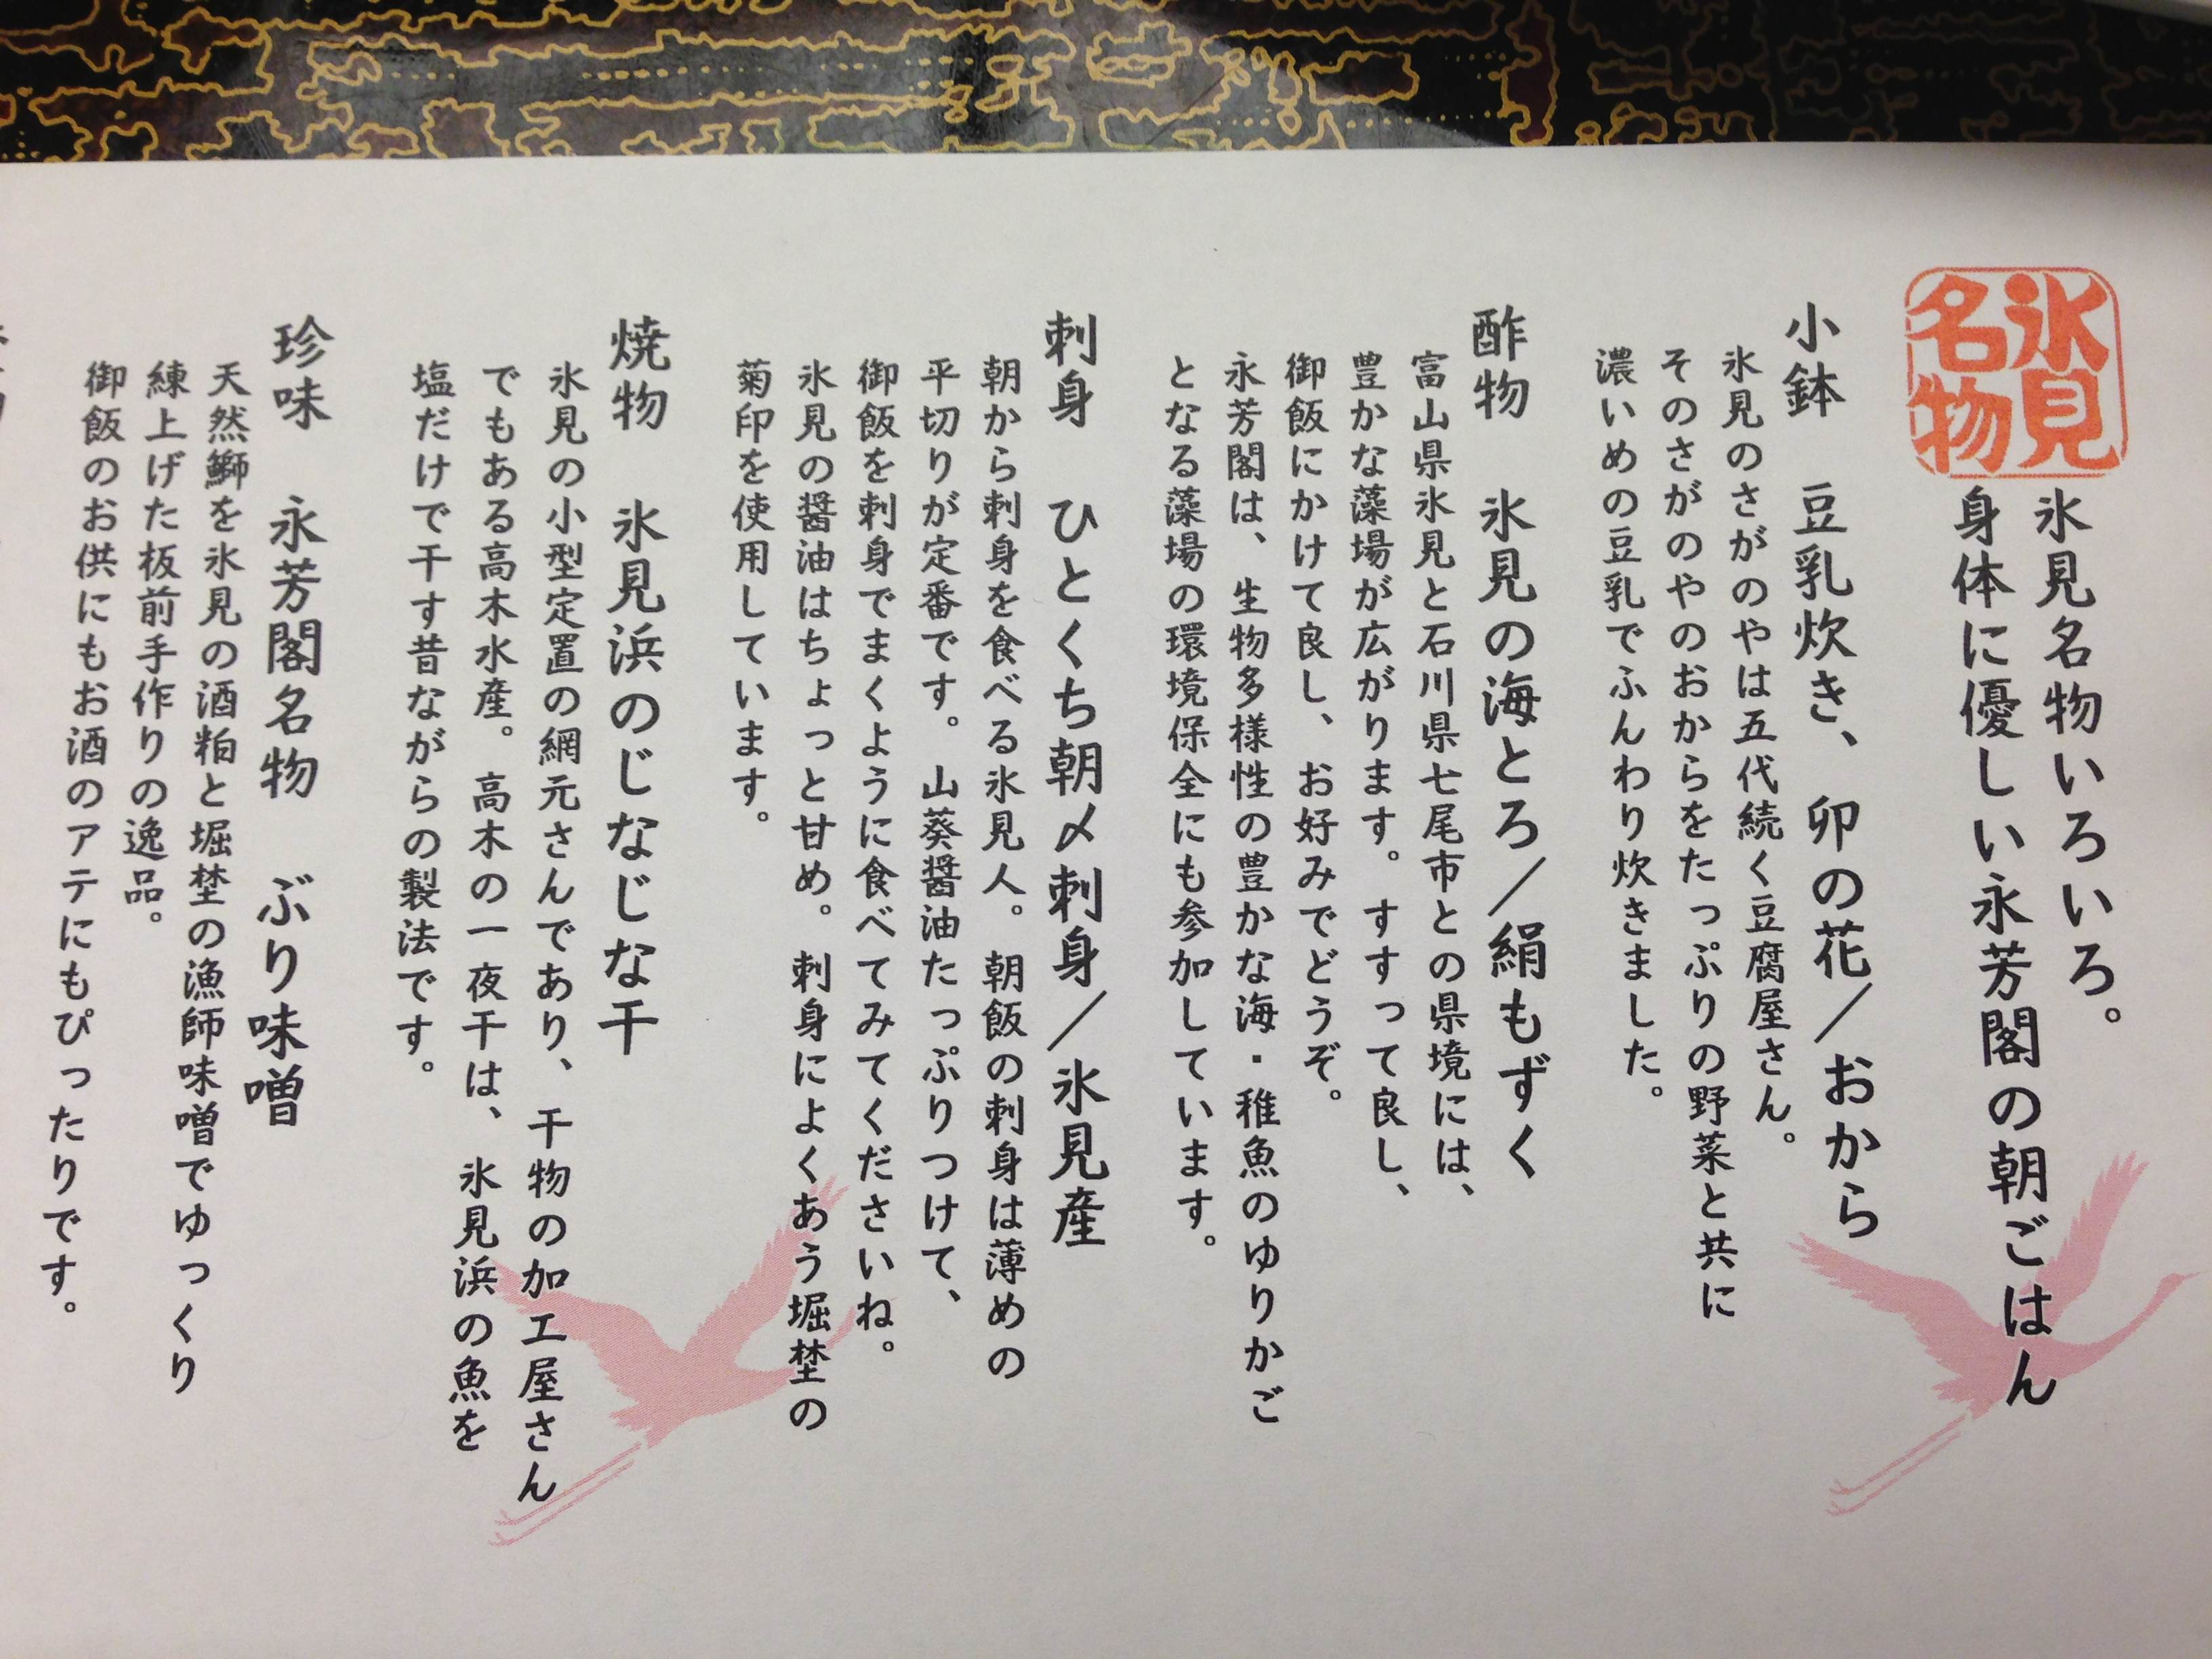 氷見名物
氷見名物いろいろ。
身体に優しい永芳閣の朝ごはん
小鉢　豆乳炊き、卯の花／おから
氷見のさがのやは五代続く豆腐屋さん。
そのさがのやのおからをたっぷりの野菜と共に
濃いめの豆乳でふんわり炊きました。
酢物　氷見の海とろ／絹もずく
富山県氷見と石川県七尾市との県境には、
豊かな藻場が広がります。すすって良し、
御飯にかけて良し、お好みでどうぞ。
永芳閣は、生物多様性の豊かな海・稚魚のゆりかご
となる藻場の環境保全にも参加しています。
刺身　ひとくち朝〆刺身／氷見産
朝から刺身を食べる氷見人。朝飯の刺身は薄めの
平切りが定番です。山葵醤油たっぷりつけて、
御飯を刺身でまくように食べてみてくださいね。
氷見の醤油はちょっと甘め。刺身によくあう堀埜の
菊印を使用しています。
焼物　氷見浜のじなじな干
氷見の小型定置の網元さんであり、干物の加工屋さん
でもある高木水産。高木の一夜干は、氷見浜の魚を
塩だけで干す昔ながらの製法です。
珍味　永芳閣名物　ぶり味噌
天然鰤を氷見の酒粕と堀埜の漁師味噌でゆっくり
練上げた板前手作りの逸品。
御飯のお供にもお酒のアテにもぴったりです。